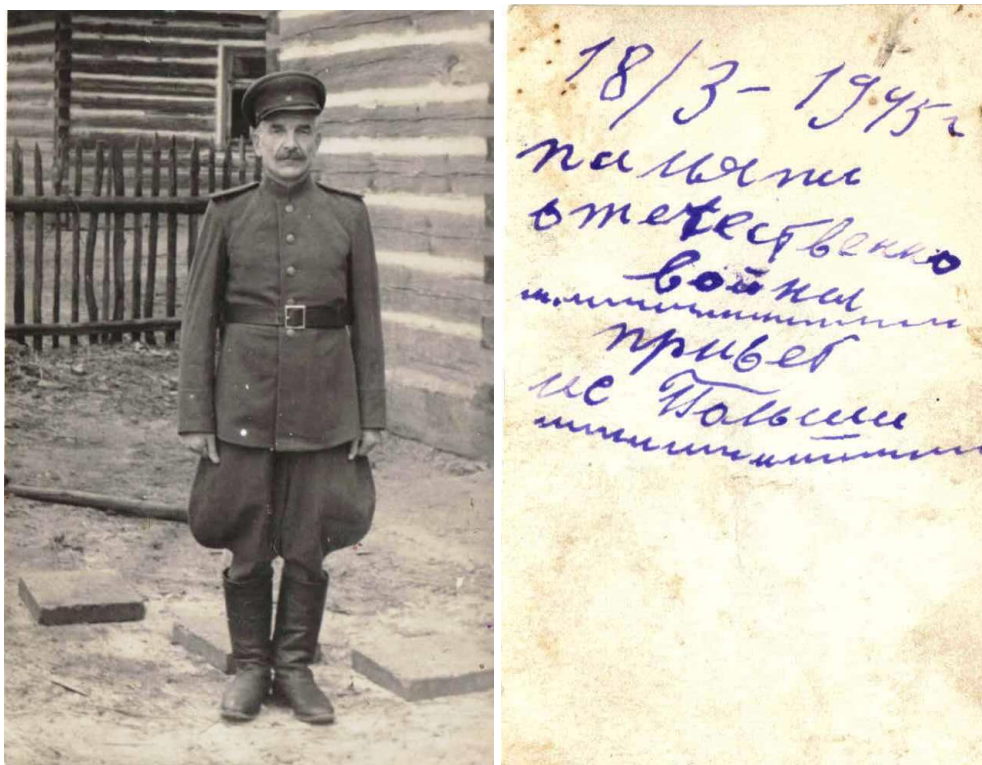 18/3 - 1945г
памяти
отечественно
войны
привет
ис Польши